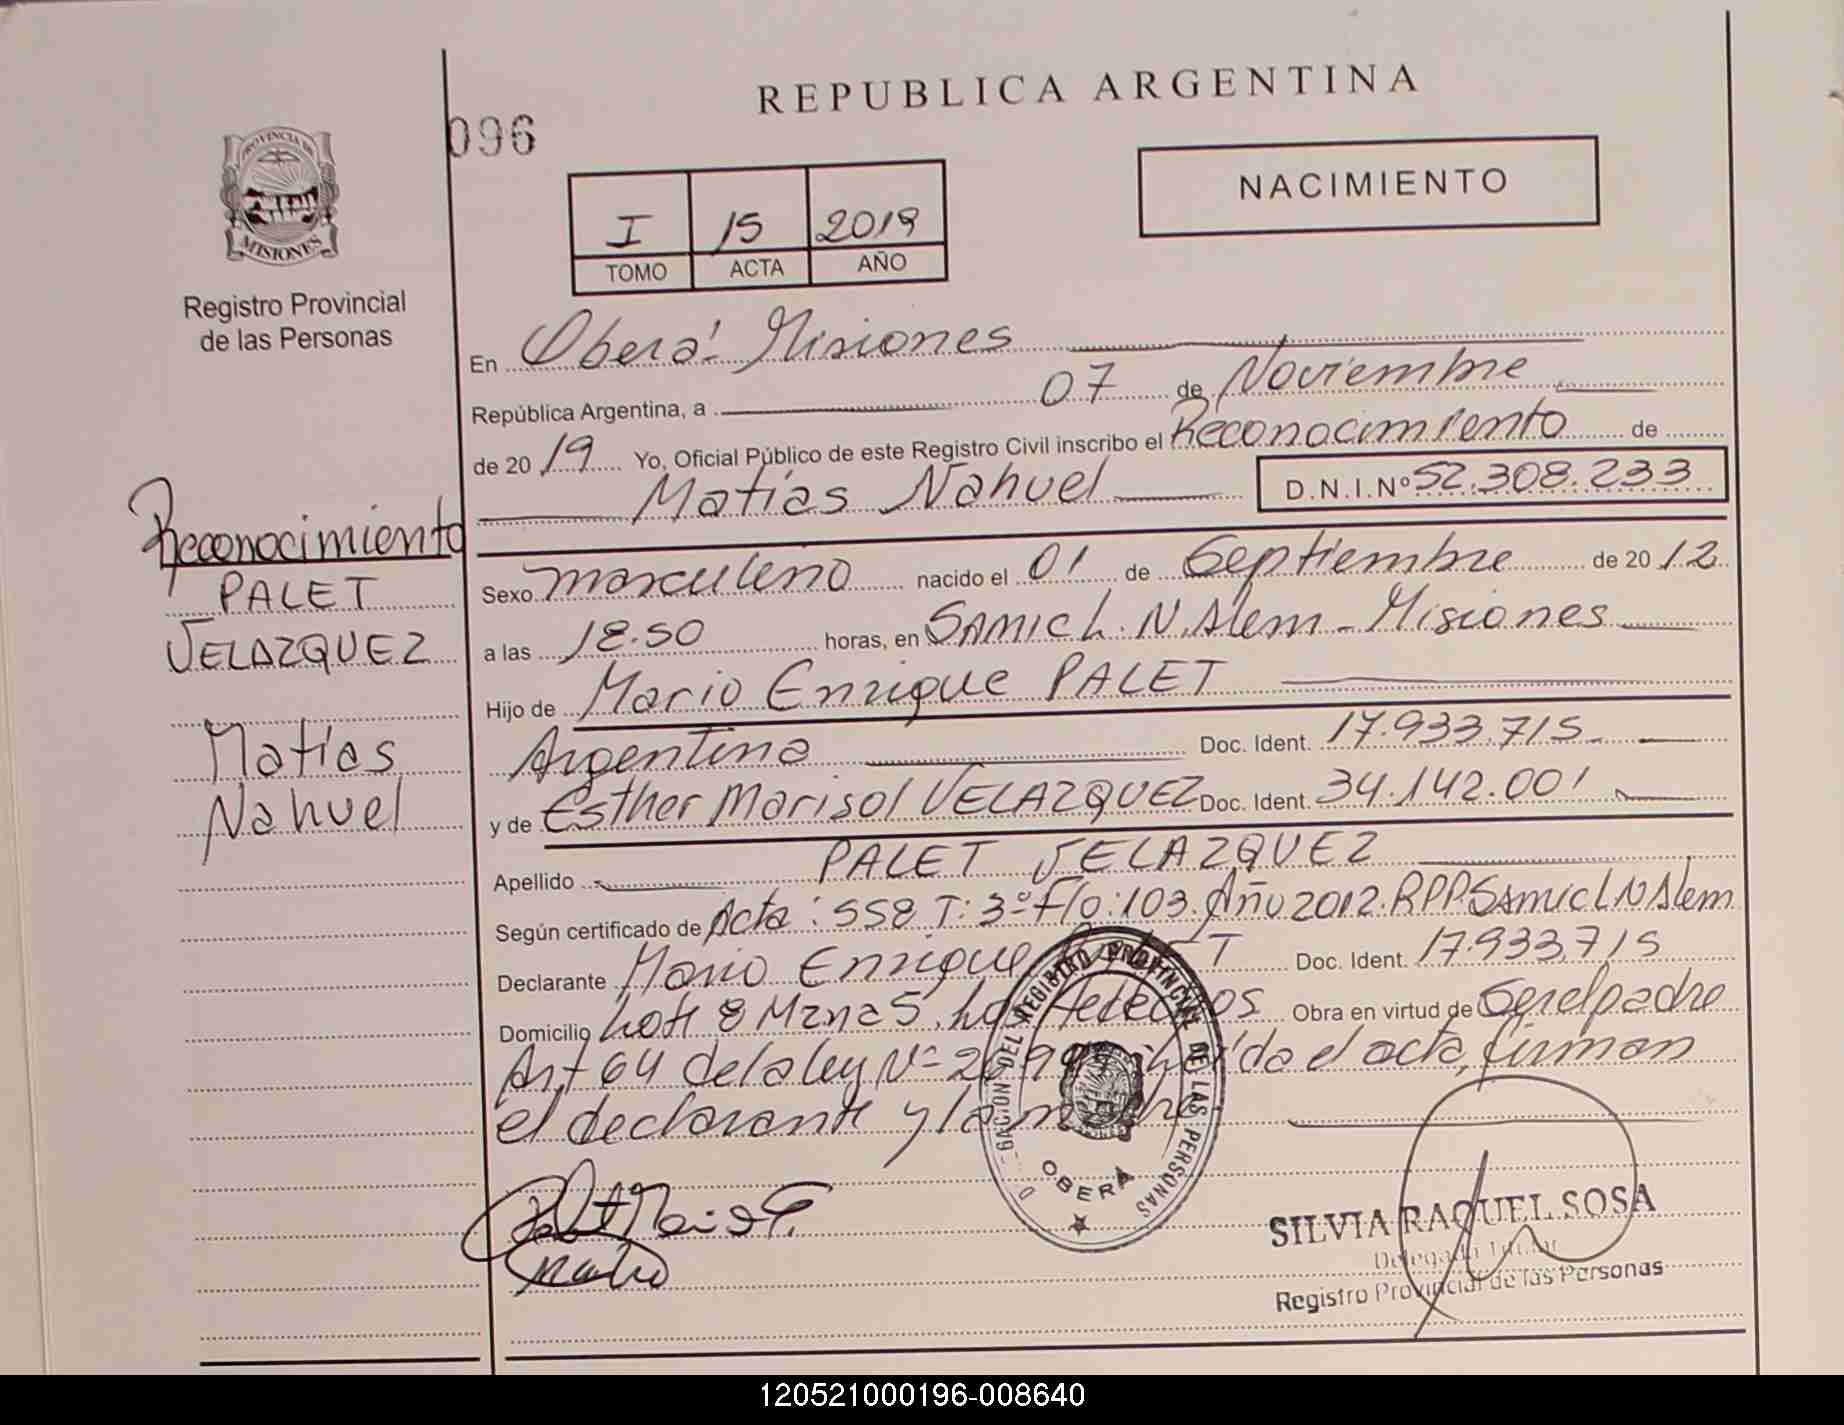 REPUBLICA ARGENTINA
096
PROVINCIA DE
MISIONES
Registro Provincial
de las Personas
I 15 2019
TOMO ACTA AÑO
NACIMIENTO
En Oberá - Misiones
República Argentina, a 07 de Noviembre
de 2019 Yo, Oficial Público de este Registro Civil inscribo el Reconocimiento de
Matías Nahuel D.N.I.Nº 52.308.233
Reconocimiento
PALET
VELAZQUEZ
Matías
Nahuel
Sexo masculino nacido el 01 de Septiembre de 2012
a las 18:50 horas, en SAMIC L.N.Alem - Misiones
Hijo de Mario Enrique PALET
Argentina Doc. Ident. 17.933.715
y de Esther Marisol VELAZQUEZ Doc. Ident. 34.142.001
Apellido PALET VELAZQUEZ
Según certificado de Acta: 558 T: 3º F/o: 103. Año 2012. RPP SAMIC L N Alem
Declarante Mario Enrique PALET Doc. Ident. 17.933.715
Domicilio Lote 8 Mzna 5, Los Obra en virtud de Ser el padre
Art 64 de la ley Nº el acta, firman
el declarante y la madre
DELEGACION DEL REGISTRO PROVINCIAL DE LAS PERSONAS
OBERA
Palet Mario E.
SILVIA RAQUEL SOSA
Delegada Titular
Registro Provincial de las Personas
120521000196-008640